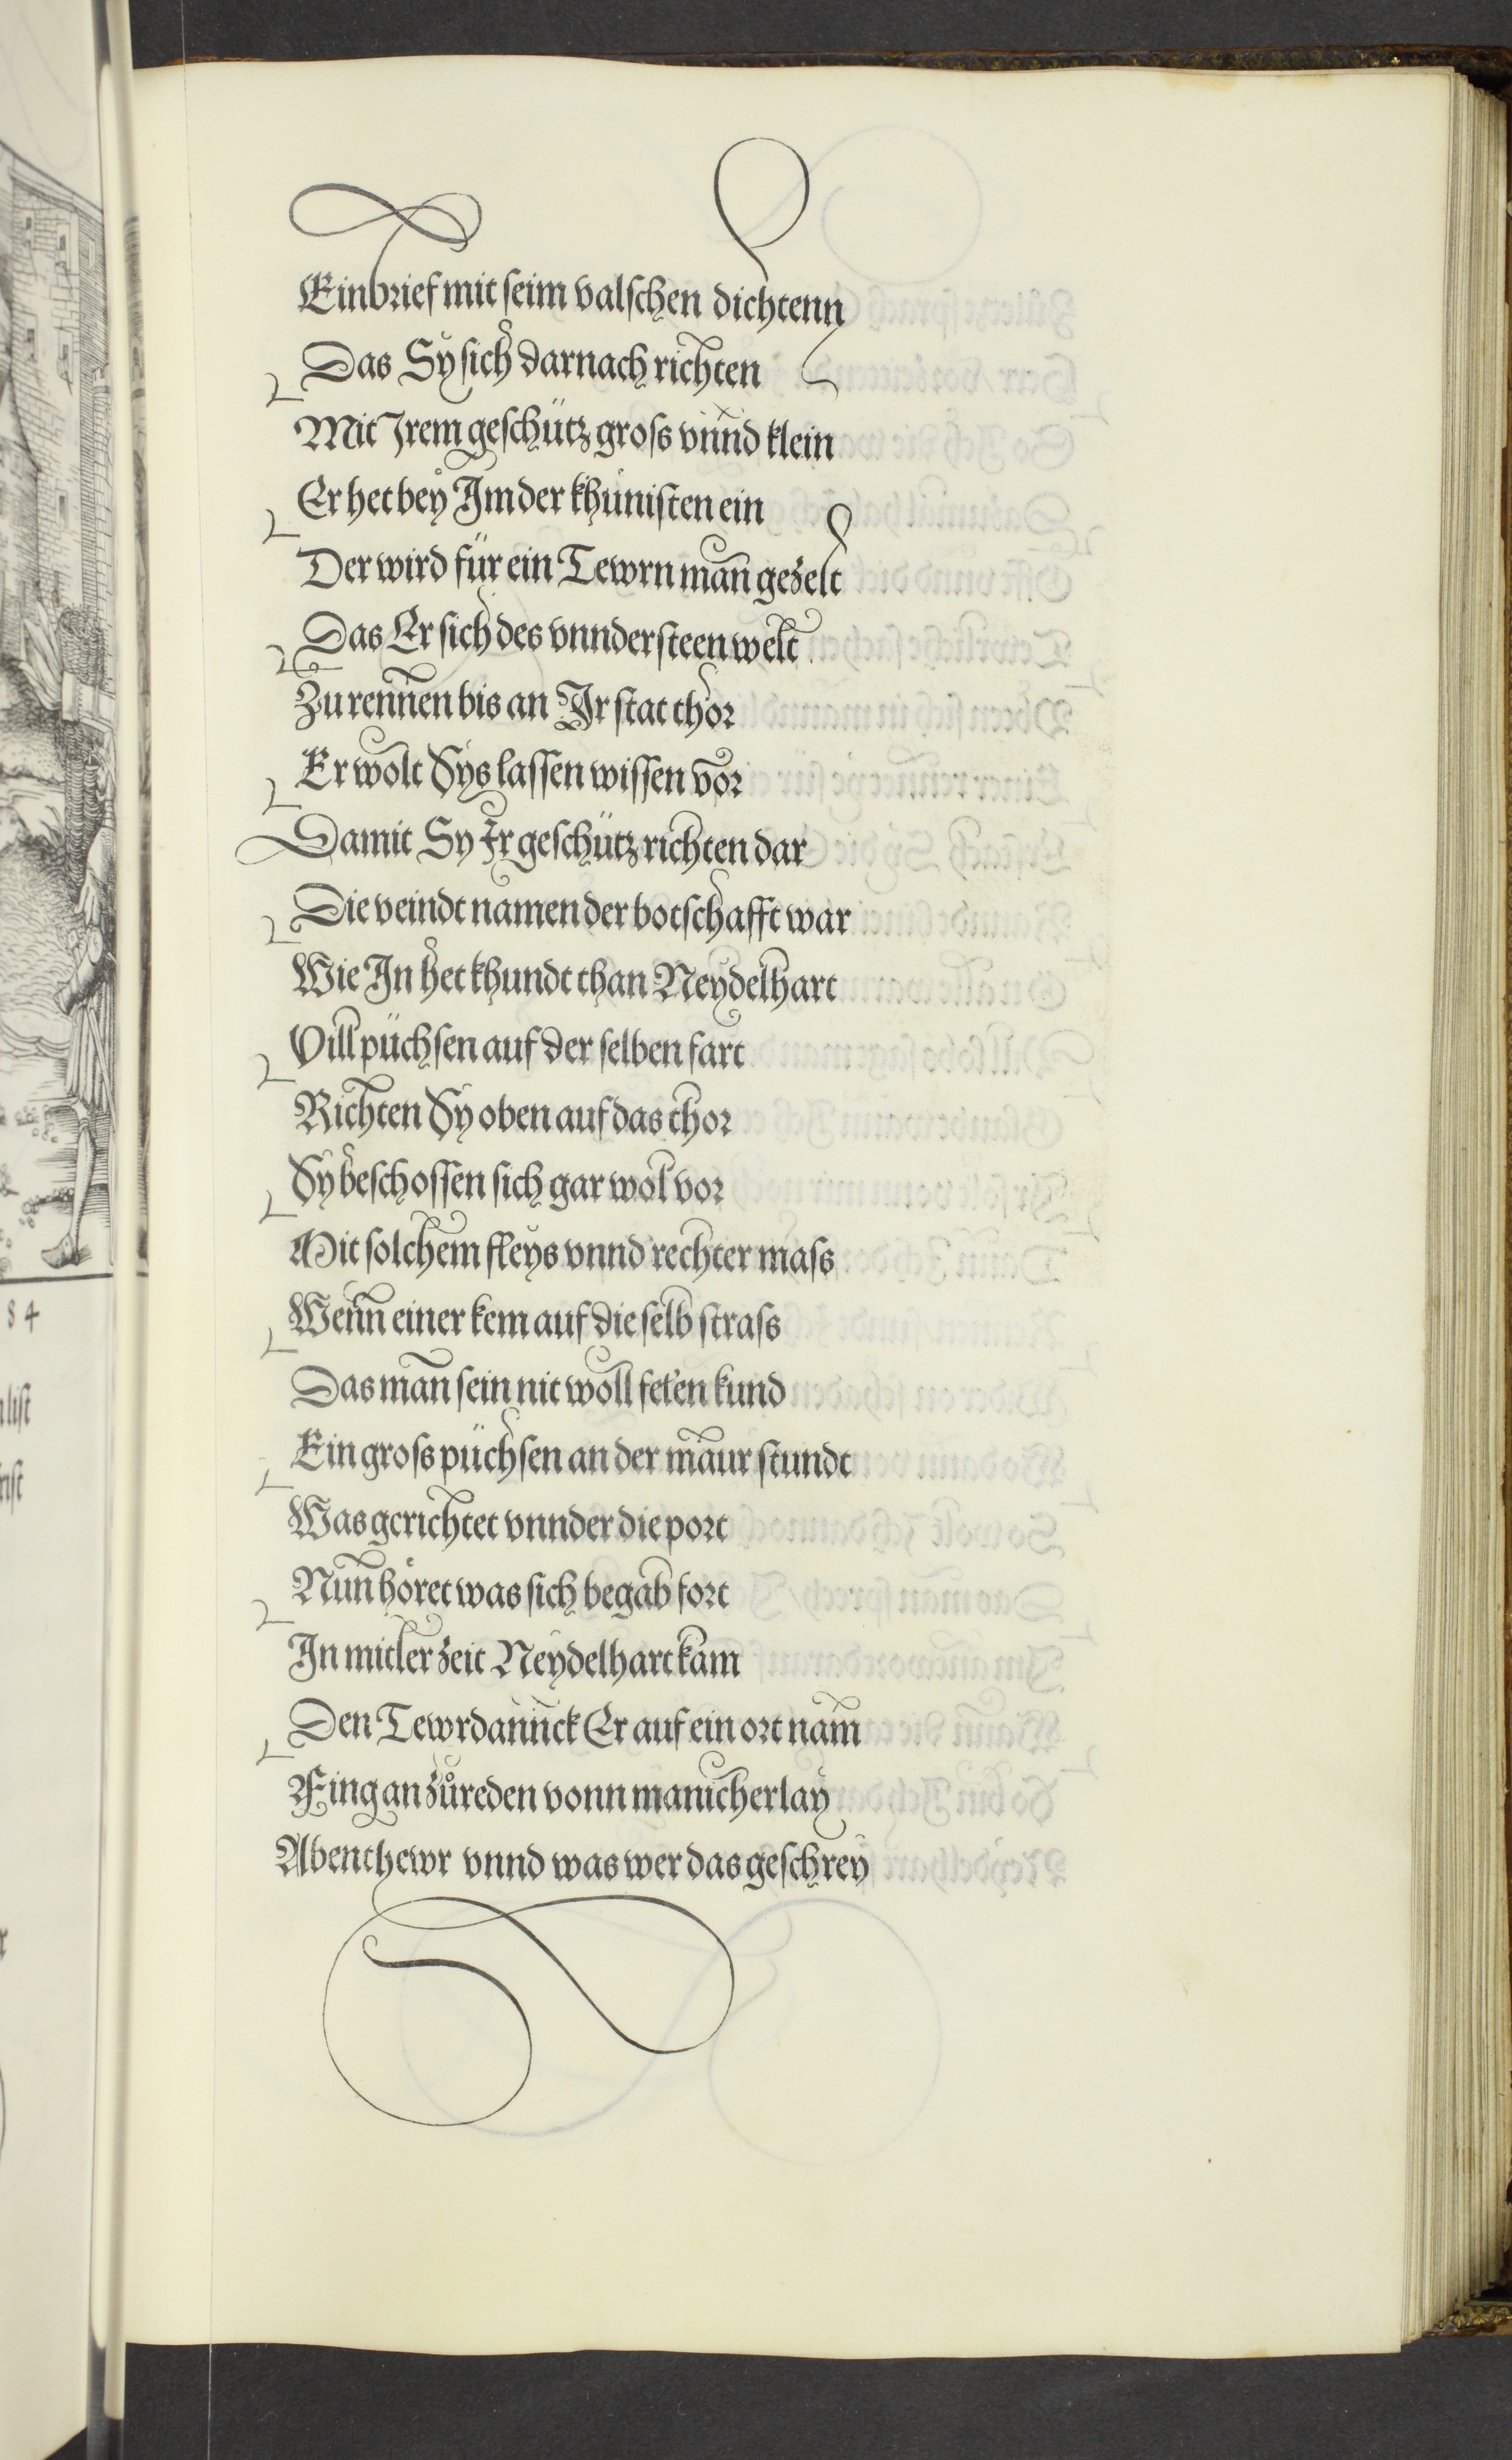 Ein brief mit seim valschen dichtenn
Das Sy sich darnach richten
Mit Irem geschütz gross vnnd klein
Er het bey Im der khünisten ein
Der wird für ein Tewrn man gezelt
Das Er sich des vnndersteen welt
Zu rennen bis an Ir stat thor
Er wolt Sys lassen wissen vor
Damit Sy Ir geschütz richten dar
Die veindt namen der botschafft war
Wie In het khundt than Neydelhart
Vill püchsen auf der selben fart
Richten Sy oben auf das thor
Sy beschossen sich gar wol vor
Mit solchem fleys vnnd rechter mass
Wenn einer kem auf die selb strass
Das man sein nit woll felen kund
Ein gross püchsen an der maur stundt
Was gerichtet vnnder die port
Nun höret was sich begab fort
In mitler zeit Neydelhart kam
Den Tewrdannck Er auf ein ort nam
Fing an zůreden vonn manicherlay
Abenthewr vnnd was wer das geschrey
84